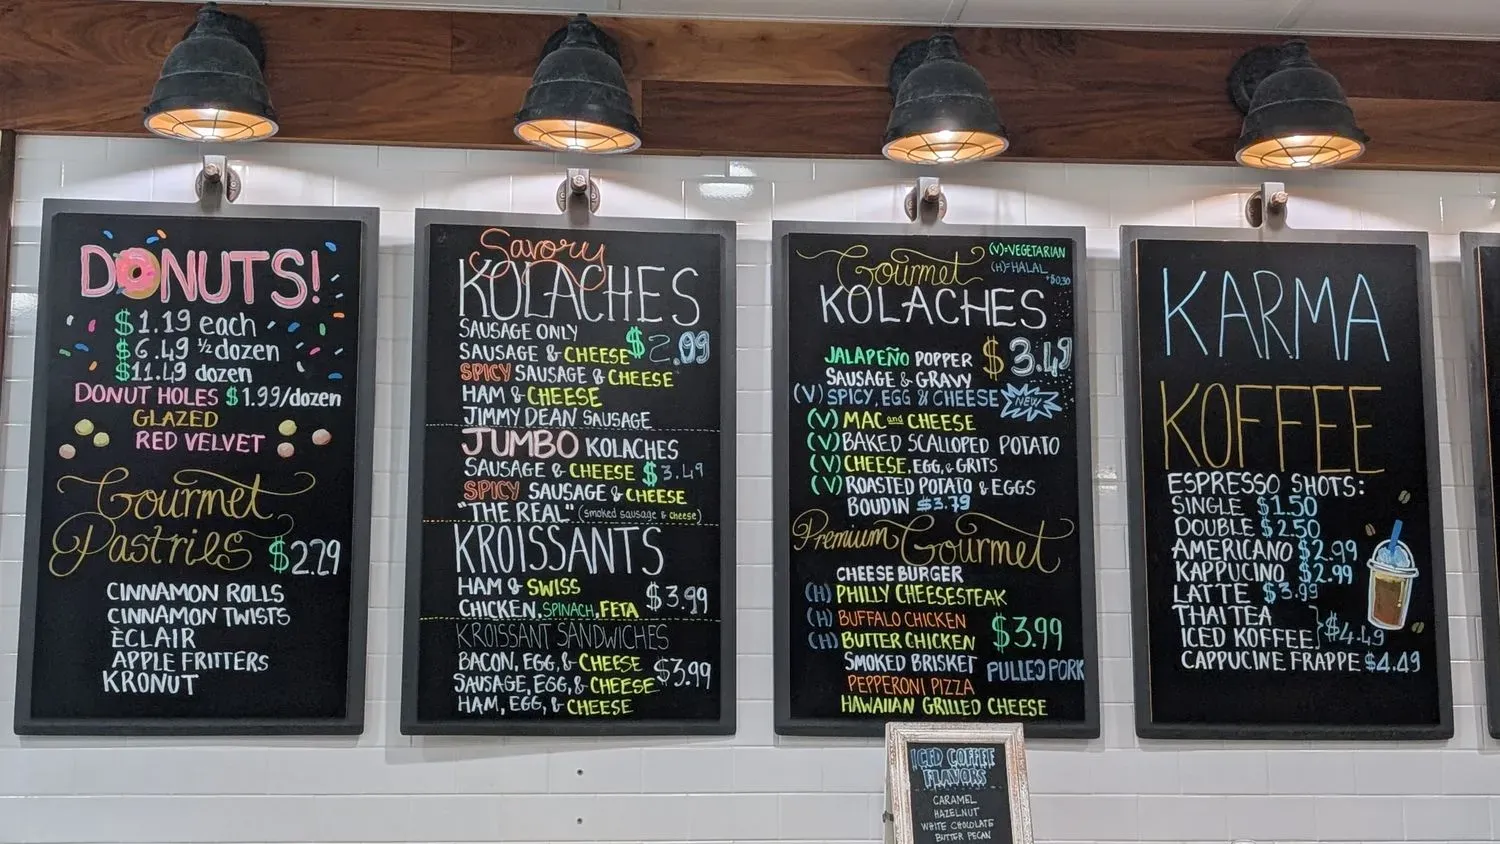 DONUTS!
$1.19 each
$6.49 ½ dozen
$11.49 dozen
DONUT HOLES $1.99/dozen
GLAZED
RED VELVET
Gourmet
Pastries $2.29
CINNAMON ROLLS
CINNAMON TWISTS
ÈCLAIR
APPLE FRITTERS
KRONUT
Savory
KOLACHES
SAUSAGE ONLY
SAUSAGE & CHEESE $2.99
SPICY SAUSAGE & CHEESE
HAM & CHEESE
JIMMY DEAN SAUSAGE
JUMBO KOLACHES
SAUSAGE & CHEESE $3.49
SPICY SAUSAGE & CHEESE
"THE REAL" (smoked sausage & cheese)
KROISSANTS
HAM & SWISS
CHICKEN, SPINACH, FETA $3.99
KROISSANT SANDWICHES
BACON, EGG, & CHEESE
SAUSAGE, EGG, & CHEESE $3.99
HAM, EGG, & CHEESE
(V)=VEGETARIAN
(H)=HALAL
+$0.30
Gourmet
KOLACHES
JALAPEÑO POPPER $3.49
SAUSAGE & GRAVY
(V) SPICY, EGG & CHEESE NEW
(V) MAC and CHEESE
(V) BAKED SCALLOPED POTATO
(V) CHEESE, EGG, & GRITS
(V) ROASTED POTATO & EGGS
BOUDIN $3.79
Premium Gourmet
CHEESEBURGER
(H) PHILLY CHEESESTEAK
(H) BUFFALO CHICKEN
(H) BUTTER CHICKEN $3.99
SMOKED BRISKET PULLED PORK
PEPPERONI PIZZA
HAWAIIAN GRILLED CHEESE
KARMA
KOFFEE
ESPRESSO SHOTS:
SINGLE $1.50
DOUBLE $2.50
AMERICANO $2.99
KAPPUCINO $2.99
LATTE $3.99
THAI TEA
ICED KOFFEE $4.49
CAPPUCINE FRAPPE $4.49
ICED COFFEE
FLAVORS
CARAMEL
HAZELNUT
WHITE CHOCOLATE
BUTTER PECAN